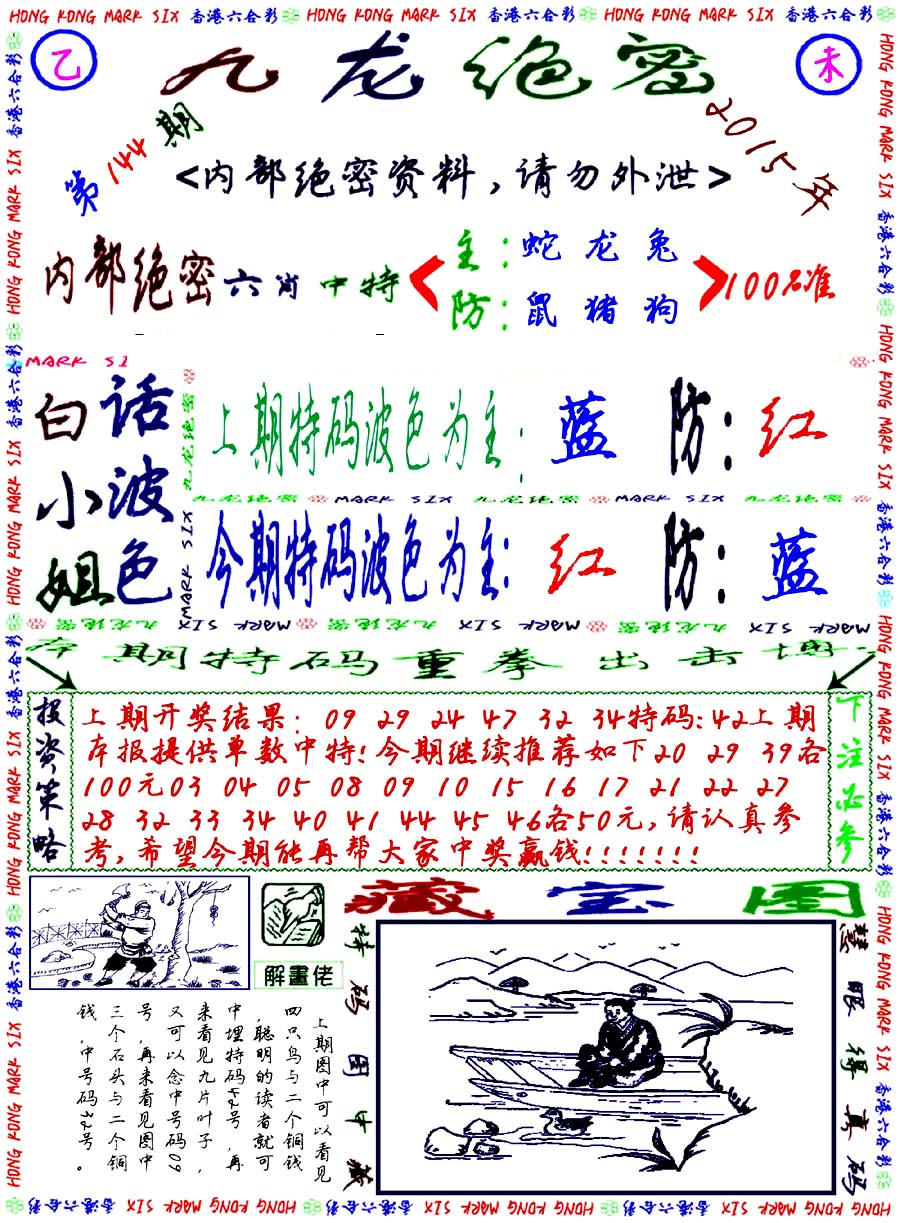 HONG KONG MARK SIX 香港六合彩 HONG KONG MARK SIX 香港六合彩 HONG KONG MARK SIX 香港六合彩
乙
九龙绝密
未
第144期
2015年
<内部绝密资料,请勿外泄>
内部绝密六肖中特
主:蛇龙兔
防:鼠猪狗
100%准
MARK SI
白话
小波
姐色
九龙绝密
MARK SIX
上期特码波色为主:蓝 防:红
九龙绝密 MARK SIX 九龙绝密 MARK SIX 九龙绝密
今期特码波色为主:红 防:蓝
九龙绝密 MARK SIX 九龙绝密 MARK SIX 九龙绝密 MARK SIX
本期特码重拳出击博
投资策略
上期开奖结果:09 29 24 47 32 34特码:42上期
本报提供单数中特!今期继续推荐如下20 29 39各
100元03 04 05 08 09 10 15 16 17 21 22 27
28 32 33 34 40 41 44 45 46各50元,请认真参
考,希望今期能再帮大家中奖赢钱!!!!!!!
下注必参
解畫佬
藏宝图
特码图中藏
慧眼得真码
上期图中可以看见
四只鸟与二个铜钱
,聪明的读者就可
中埋特码42号,再
来看见九片叶子,
又可以念中号码09
号,再来看见图中
三个石头与二个铜
钱,中号码32号。
HONG KONG MARK SIX 香港六合彩 HONG KONG MARK SIX 香港六合彩 HONG KONG MARK SIX 香港六合彩